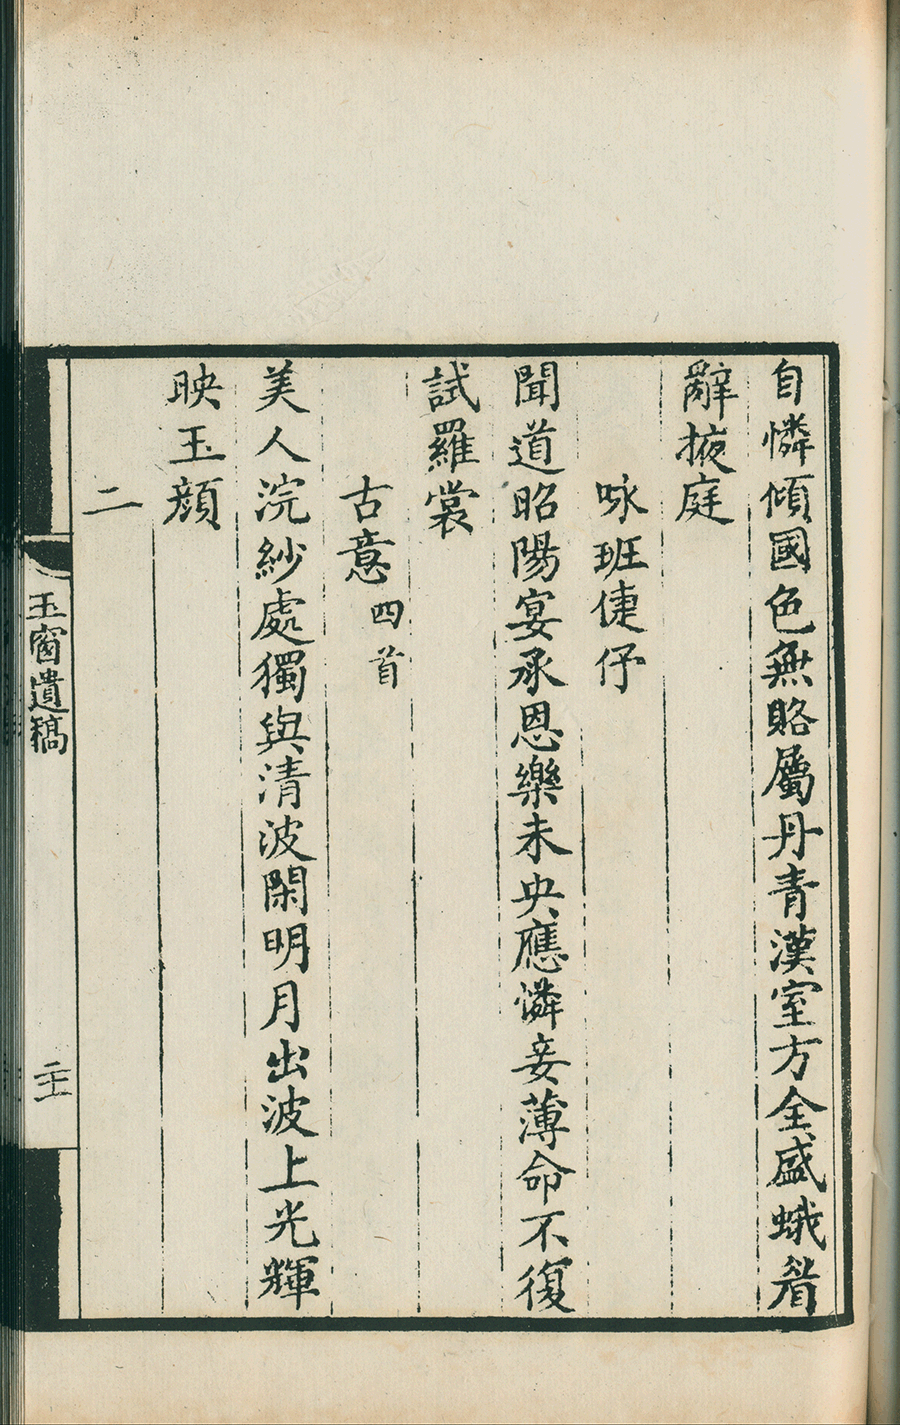 自憐傾國色無賂屬丹青漢室方全盛蛾眉
辭掖庭
咏班倢伃
聞道昭陽宴承恩樂未央應憐妾薄命不復
試羅裳
古意四首
美人浣紗處獨與清波閑明月出波上光輝
映玉顔
二
玉窗遺稿
二十一